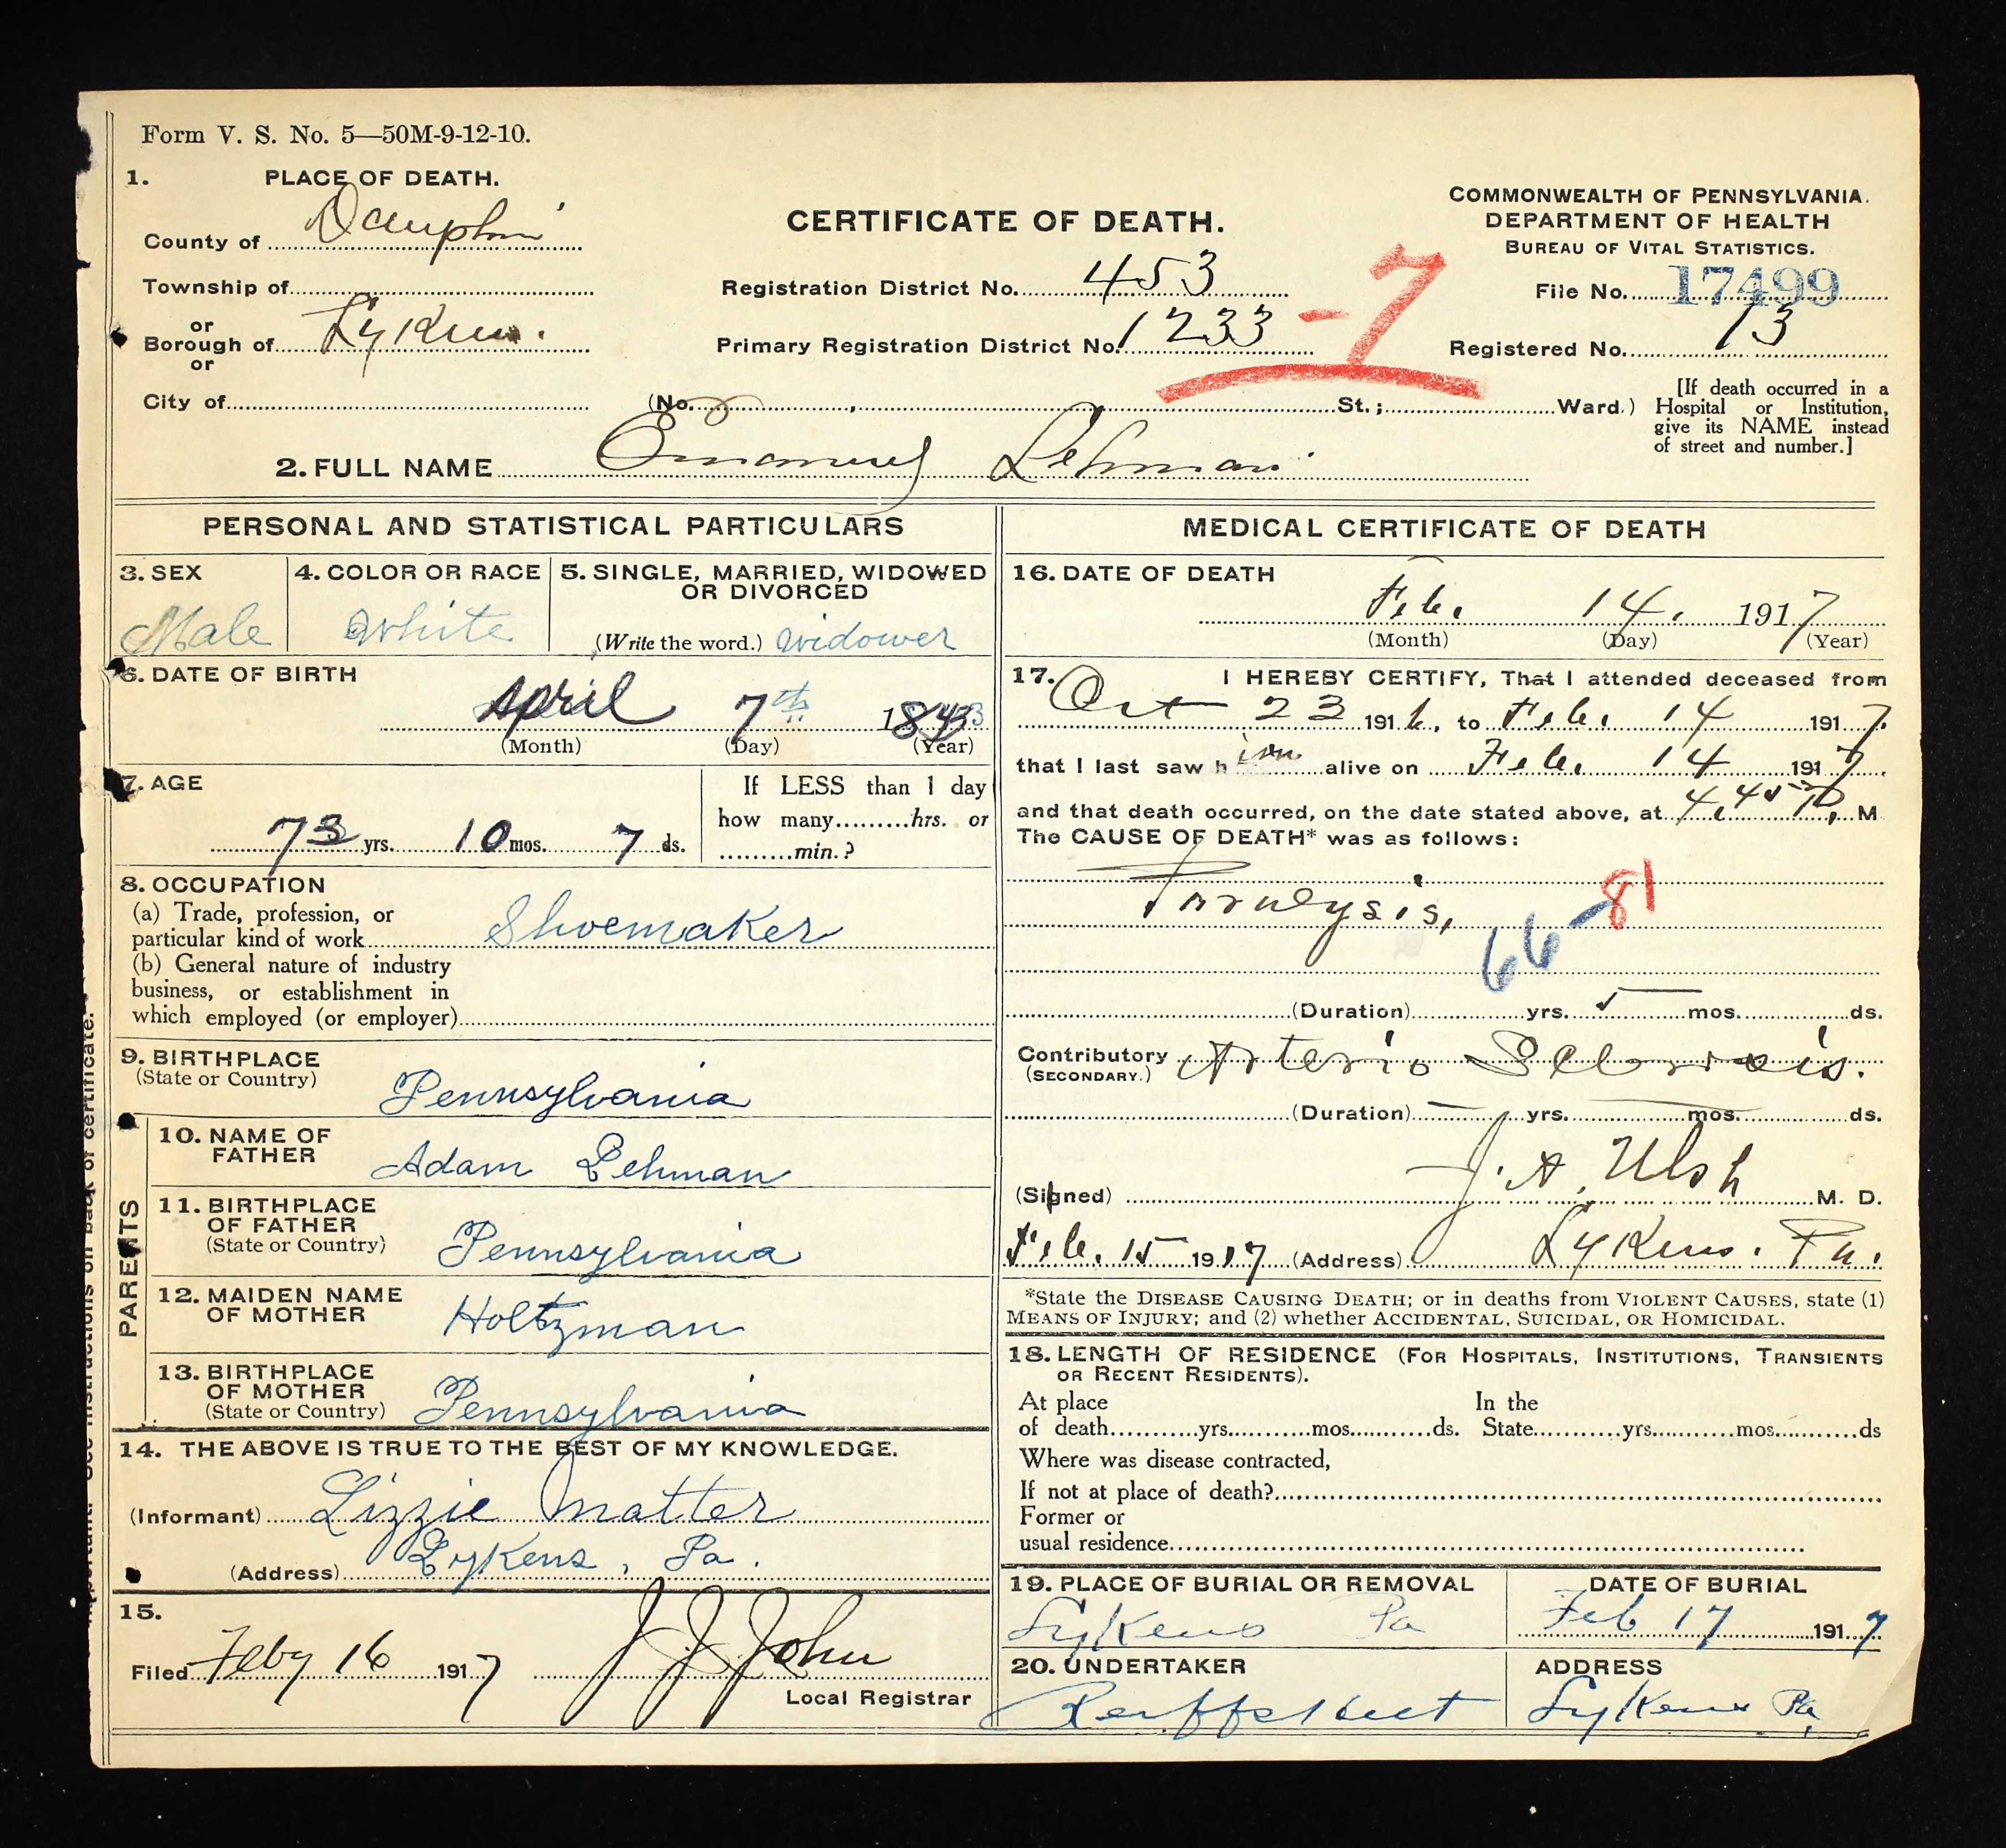 Form V. S. No. 5—50M-9-12-10.
1. PLACE OF DEATH.
County of Dauphin
Township of
or
Borough of Lykens.
or
City of
CERTIFICATE OF DEATH.
Registration District No. 453
Primary Registration District No. 1233 -7
(No. , St.; Ward.)
COMMONWEALTH OF PENNSYLVANIA.
DEPARTMENT OF HEALTH
BUREAU OF VITAL STATISTICS.
File No. 17499
Registered No. 13
[If death occurred in a
Hospital or Institution,
give its NAME instead
of street and number.]
2. FULL NAME Emanuel Lehman
PERSONAL AND STATISTICAL PARTICULARS
3. SEX
Male
4. COLOR OR RACE
White
5. SINGLE, MARRIED, WIDOWED
OR DIVORCED
(Write the word.) Widower
6. DATE OF BIRTH
April 7th 1843
(Month) (Day) (Year)
7. AGE
73 yrs. 10 mos. 7 ds.
If LESS than 1 day
how many hrs. or
min.?
8. OCCUPATION
(a) Trade, profession, or
particular kind of work Shoemaker
(b) General nature of industry
business, or establishment in
which employed (or employer)
9. BIRTHPLACE
(State or Country)
Pennsylvania
PARENTS
10. NAME OF
FATHER
Adam Lehman
11. BIRTHPLACE
OF FATHER
(State or Country)
Pennsylvania
12. MAIDEN NAME
OF MOTHER
Holtzman
13. BIRTHPLACE
OF MOTHER
(State or Country)
Pennsylvania
14. THE ABOVE IS TRUE TO THE BEST OF MY KNOWLEDGE.
(Informant) Lizzie Matter
(Address) Lykens, Pa.
15.
Filed Feby 16 1917 J J John
Local Registrar
MEDICAL CERTIFICATE OF DEATH
16. DATE OF DEATH
Feb. 14. 1917
(Month) (Day) (Year)
17. I HEREBY CERTIFY, That I attended deceased from
Oct 23 1916, to Feb. 14 1917.
that I last saw h im alive on Feb. 14 1917.
and that death occurred, on the date stated above, at 4.45 P. M.
The CAUSE OF DEATH* was as follows:
Paralysis,
66-81
(Duration) yrs. 5 mos. ds.
Contributory Arterio Sclerosis.
(SECONDARY.)
(Duration) yrs. mos. ds.
(Signed) J. A. Ulsh M. D.
Feb. 15 1917 (Address) Lykens. Pa.
*State the DISEASE CAUSING DEATH; or in deaths from VIOLENT CAUSES, state (1)
MEANS OF INJURY; and (2) whether ACCIDENTAL, SUICIDAL, OR HOMICIDAL.
18. LENGTH OF RESIDENCE (FOR HOSPITALS, INSTITUTIONS, TRANSIENTS
OR RECENT RESIDENTS).
At place In the
of death yrs. mos. ds. State yrs. mos. ds
Where was disease contracted,
If not at place of death?
Former or
usual residence
19. PLACE OF BURIAL OR REMOVAL
Lykens Pa
DATE OF BURIAL
Feb 17 1917
20. UNDERTAKER
ADDRESS
Lykens Pa,
See instructions on back of certificate.